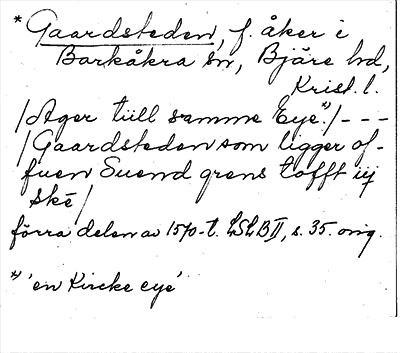 * Gaardsteden, f. åker i
Barkåkra sn, Bjäre hd,
Krist. l.
/Ager tüll samme Eye*)/ - - -
/Gaardsteden som ligger of-
fuen Suend grens tofft iij
skē/
förra delen av 1570-t. LSLB II, s. 35. orig.
*) 'en Kircke eye'